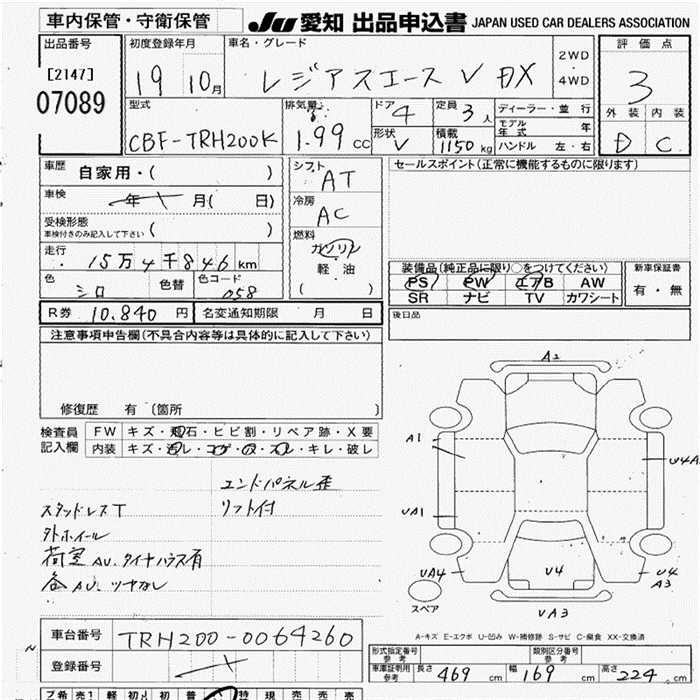 車内保管・守衛保管
JU 愛知 出品申込書 JAPAN USED CAR DEALERS ASSOCIATION
出品番号
[2147]
07089
初度登録年月
19 10月
車名・グレード
レジアスエース V DX
2WD
4WD
評価点
3
外装 内装
D C
型式
CBF-TRH200K
排気量
1.99 cc
ドア
4
定員
3人
形状
V
積載
1150 kg
ディーラー・並行
モデル年式 年
ハンドル 左・右
車歴
自家用・( )
車検
年 月( 日)
受検形態
車検付きのみ記入して下さい ( )
走行
15万4千846km
色
シロ
色替
色コード
058
シフト
AT
冷房
AC
燃料
ガソリン
軽油
( )
セールスポイント(正常に機能するものに限ります)
装備品(純正品に限り○をつけてください)
PS PW エアB AW
SR ナビ TV カワシート
新車保証書
有・無
R券 10.840 円
名変通知期限 月 日
後日品
注意事項申告欄(不具合内容等は具体的に記入して下さい)
修復歴 有 〔箇所 〕
検査員
記入欄
FW キズ・飛石・ヒビ割・リペア跡・X要
内装 キズ・汚レ・コゲ・穴・スレ・キレ・破レ
エンドパネル歪
スタッドレスT リフト付
外ホイール
荷室AU、タイヤハウス有
各AU、ツヤなし
A2
A1
U4A
UA1
UA4
U4
U4
A3
スペア
UA3
A-キズ E-エクボ U-凹み W-補修跡 S-サビ C-腐食 XX-交換済
車台番号
TRH200-0064260
登録番号
形式指定番号
参考
類別区分番号
参考
車庫証明用
参考
長さ 469 cm 幅 169 cm 高さ 224 cm